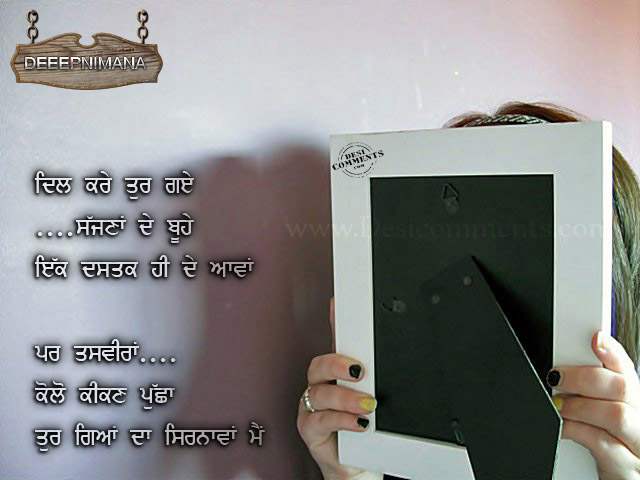 DEEEPNIMANA
DESI
COMMENTS
.COM
www.Desicomments.com
ਦਿਲ ਕਰੇ ਤੁਰ ਗਏ
....ਸੱਜਣਾਂ ਦੇ ਬੂਹੇ
ਇੱਕ ਦਸਤਕ ਹੀ ਦੇ ਆਵਾਂ
ਪਰ ਤਸਵੀਰਾਂ....
ਕੋਲੋ ਕੀਕਣ ਪੁੱਛਾ
ਤੁਰ ਗਿਆਂ ਦਾ ਸਿਰਨਾਵਾਂ ਮੈਂ